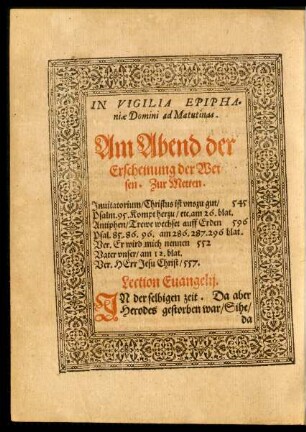 IN VIGILIA EPIPHA-
niæ Domini ad Matutinas.
Am Abend der
Erscheinung der Wei-
sen. Zur Metten.
Inuitatorium/Christus ist vns zu gut/ 545
Psalm. 95. Kompt herzu/ etc. am 26. blat.
Antiphen/Trewe wechset auff Erden 596
Psal. 85. 86. 96. am 286. 287. 296 blat.
Ver. Er wird mich nennen 552
Vater vnser/ am 12. blat.
Ver. HErr Jesu Christ/ 557.
Lection Euangelij.
IN der selbigen zeit. Da aber
Herodes gestorben war/ Sihe/
da